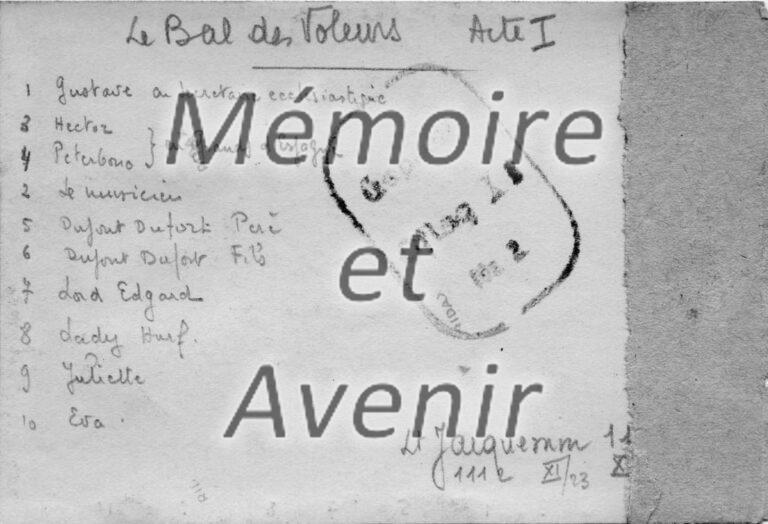 Le Bal des Voleurs Acte I
1 Gustave en secretaire ecclésiastique
3 Hector
4 Peterbono } en grands d'Espagne
2 Le musicien
5 Dufont Dufort Père
6 Dupont Dufort Fils
7 Lord Edgard
8 Lady Hurf.
9 Juliette
10 Eva.
Mémoire
et
Avenir
Lt Jacquemin 11
1112 XI/23 X